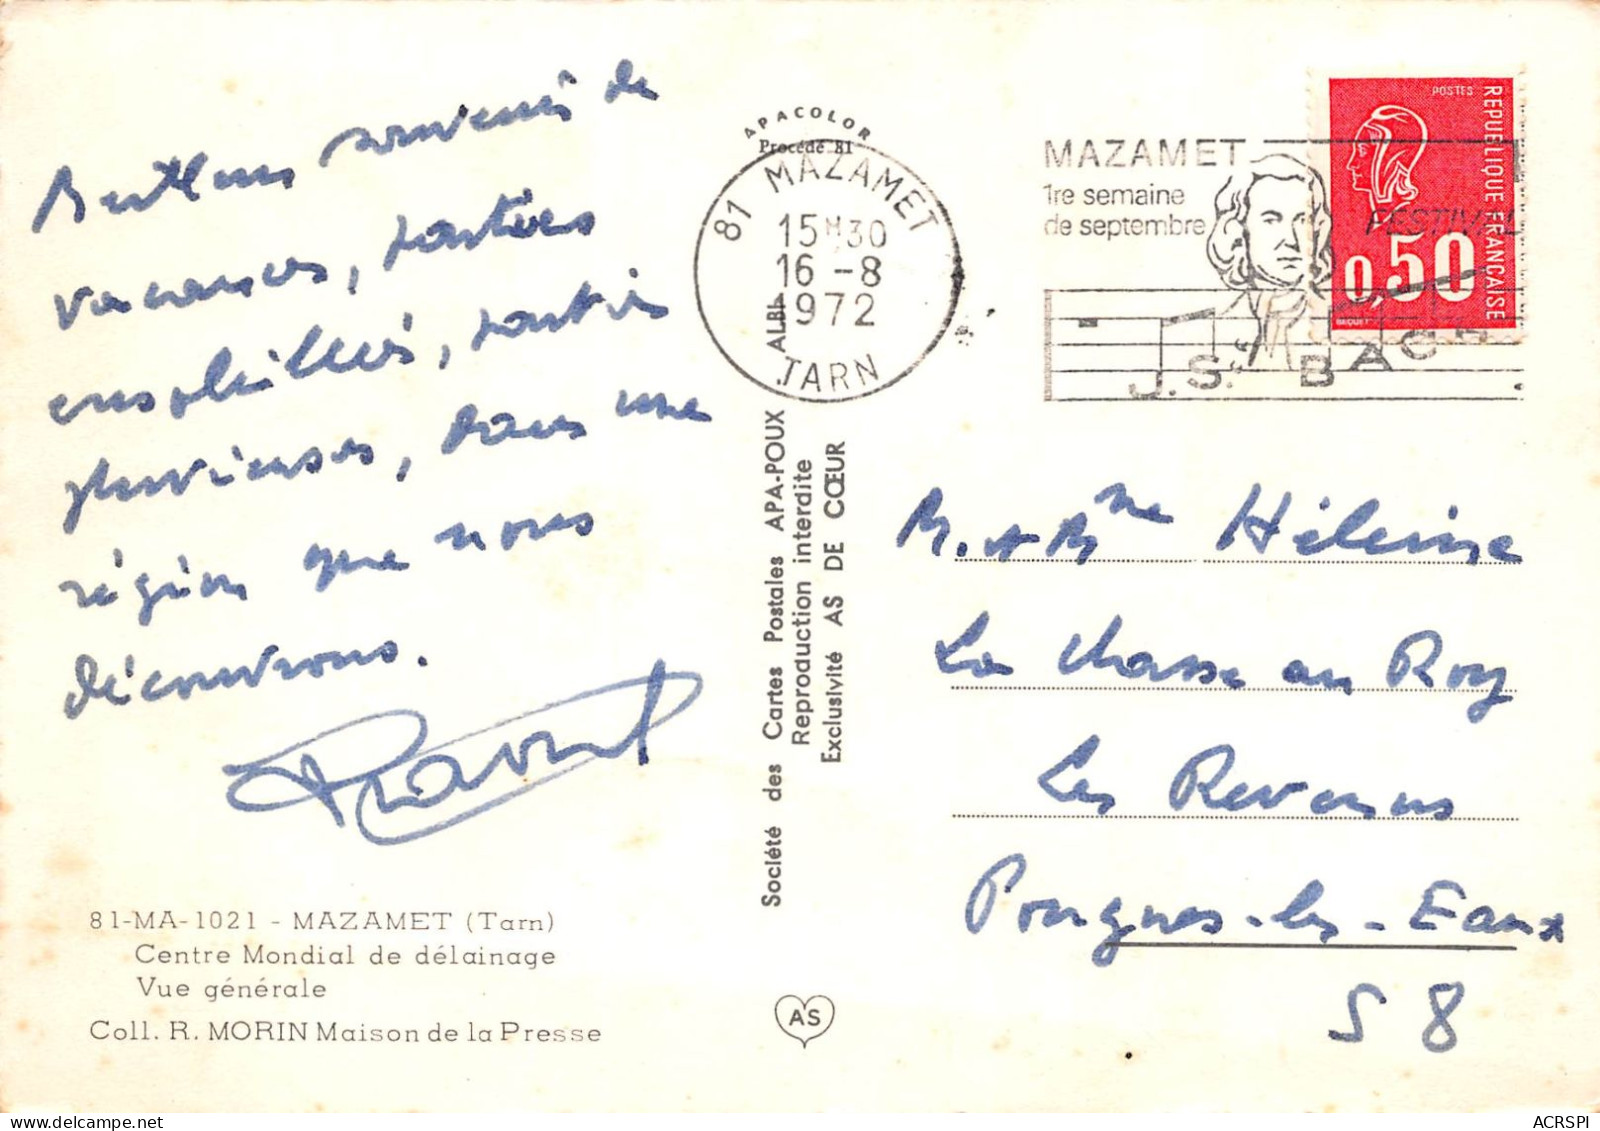 Meilleurs souvenirs de
vacances, parties
ensoleillées, parties
pluvieuses, dans une
région que nous
découvrons.
Raoul
81-MA-1021 - MAZAMET (Tarn)
Centre Mondial de délainage
Vue générale
Coll. R. MORIN Maison de la Presse
APACOLOR
Procédé 81
Société des Cartes Postales APA-POUX ALBI
Reproduction interdite
Exclusivité AS DE CŒUR
AS
81 MAZAMET
15H30
16-8
1972
TARN
MAZAMET
1re semaine
de septembre
FESTIVAL
J.S. BACH
POSTES
REPUBLIQUE FRANÇAISE
0,50
BEQUET
M. & Mme
La Chasse au Roy
Les Revenus
Pougues-les-Eaux
58
ACRSPI